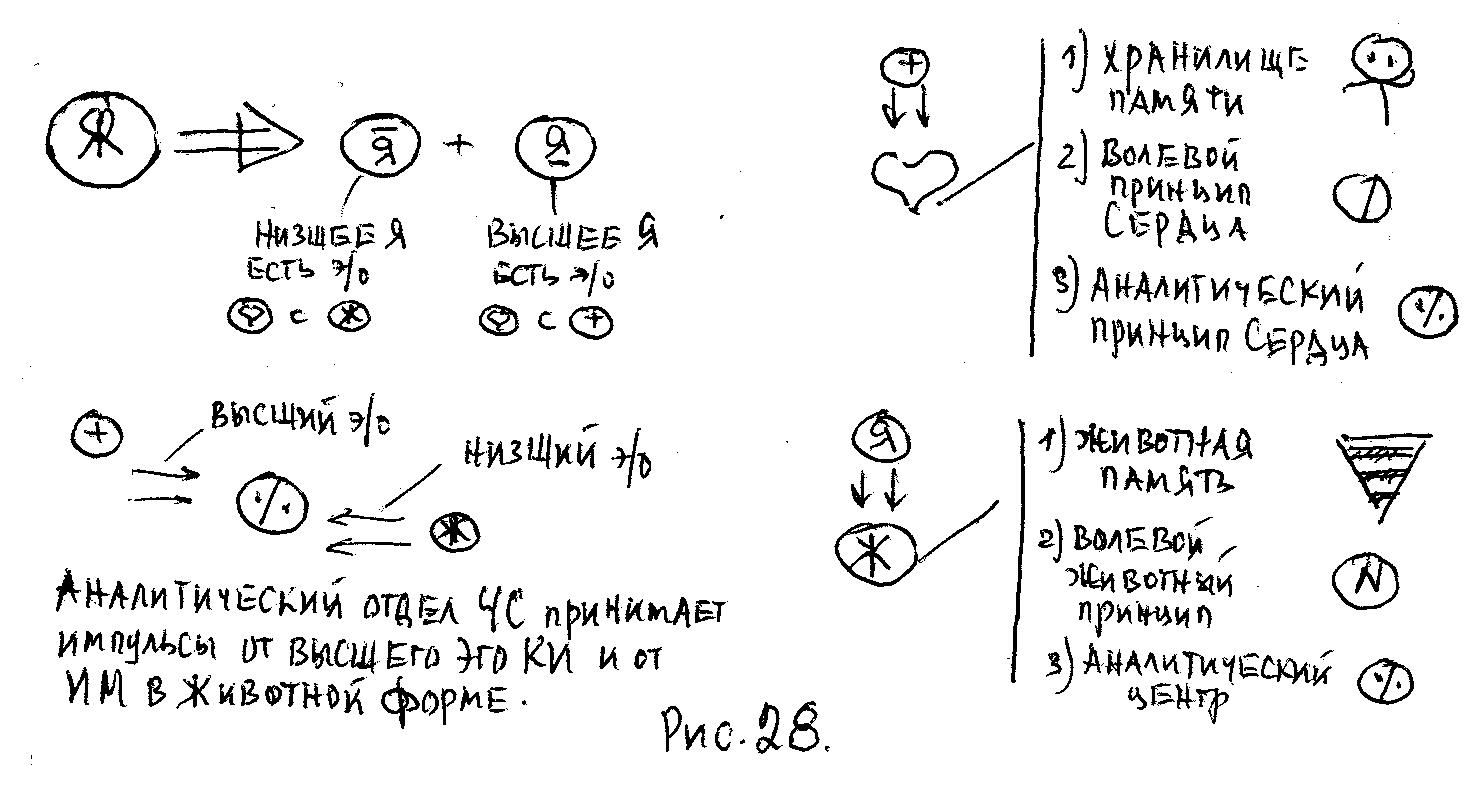 Я + Я
НИЗШЕЕ Я
ЕСТЬ Э/О
С Ж
ВЫСШЕЕ Я
ЕСТЬ Э/О
С +
+
1) ХРАНИЛИЩЕ
ПАМЯТИ
2) ВОЛЕВОЙ
ПРИНЦИП
СЕРДЦА
3) АНАЛИТИЧЕСКИЙ
ПРИНЦИП СЕРДЦА
+
ВЫСШИЙ Э/О
НИЗШИЙ Э/О
Ж
АНАЛИТИЧЕСКИЙ ОТДЕЛ ЧС ПРИНИМАЕТ
ИМПУЛЬСЫ ОТ ВЫСШЕГО ЭГО КИ И ОТ
ИМ В ЖИВОТНОЙ ФОРМЕ.
Я
Ж
1) ЖИВОТНАЯ
ПАМЯТЬ
2) ВОЛЕВОЙ
ЖИВОТНЫЙ
ПРИНЦИП
N
3) АНАЛИТИЧЕСКИЙ
ЦЕНТР
Рис. 28.